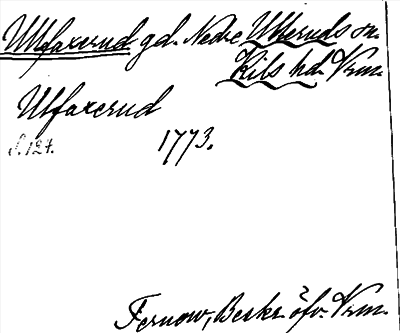 Ulfaxerud gd. Nedre Ulleruds sn.
Kils hd. Vrm.
Ulfaxerud
S. 127. 1773.
Fernow, Beskr. öfv. Vrm.